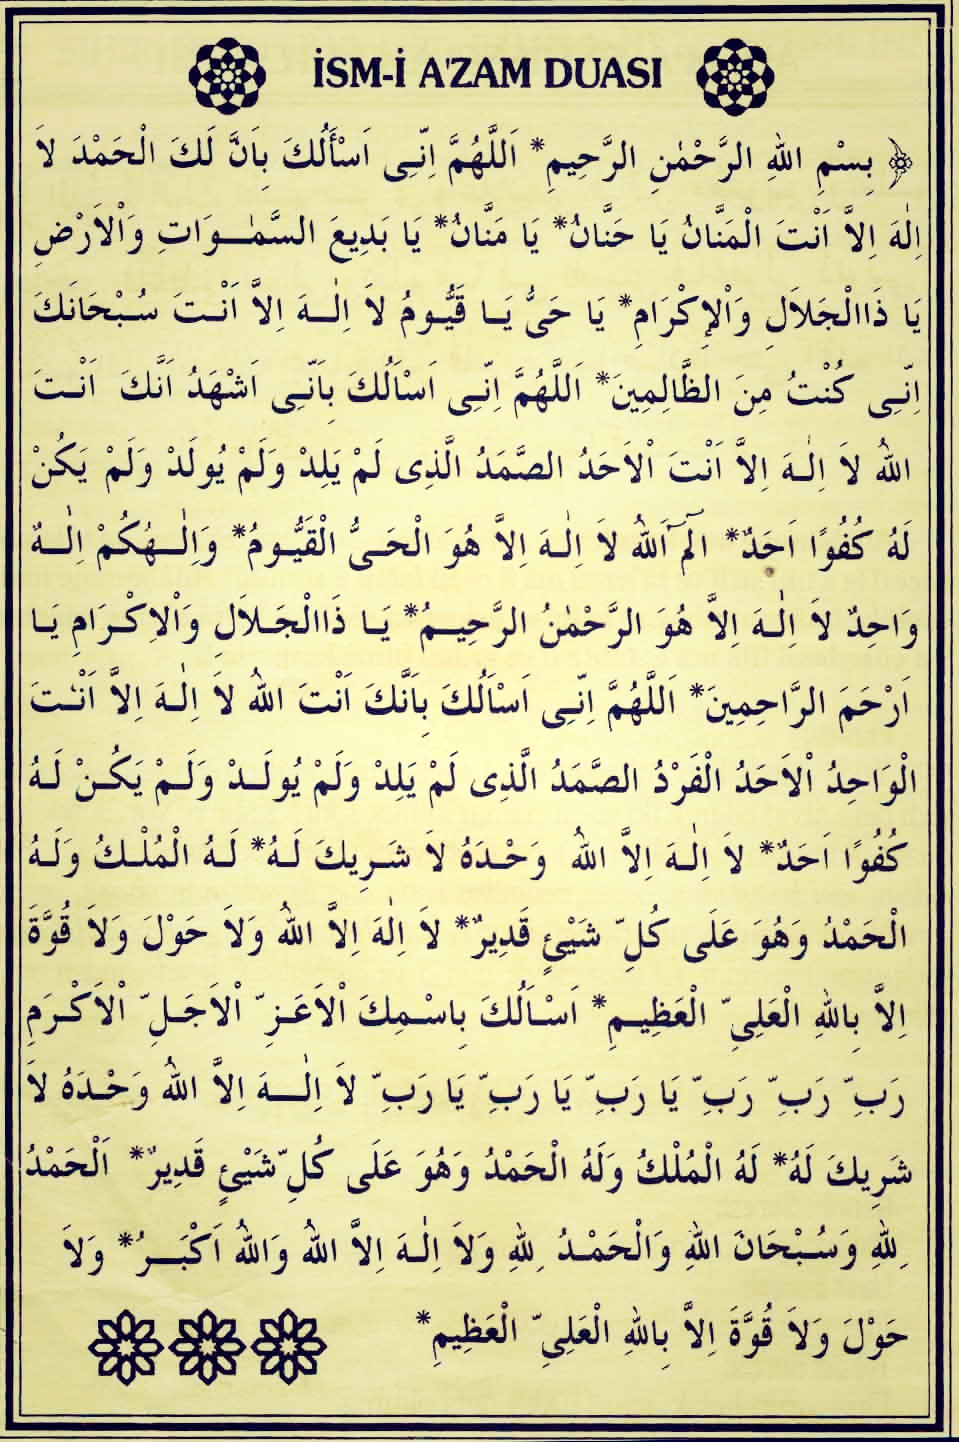 İSM-İ A'ZAM DUASI
﴿ بِسْمِ اللهِ الرَّحْمٰنِ الرَّحِيمِ* اَللَّهُمَّ اِنِّى اَسْأَلُكَ بِاَنَّ لَكَ الْحَمْدَ لاَ
اِلٰهَ اِلاَّ اَنْتَ الْمَنَّانُ يَا حَنَّانُ* يَا مَنَّانُ* يَا بَدِيعَ السَّمٰـوَاتِ وَاْلاَرْضِ
يَا ذَاالْجَلاَلِ وَاْلاِكْرَامِ* يَا حَىُّ يَـا قَيُّـومُ لاَ اِلٰـهَ اِلاَّ اَنْـتَ سُبْحَانَكَ
اِنِّـى كُنْتُ مِنَ الظَّالِمِينَ* اَللَّهُمَّ اِنِّـى اَسْاَلُكَ بِاَنِّـى اَشْهَدُ اَنَّكَ اَنْـتَ
اللهُ لاَ اِلٰـهَ اِلاَّ اَنْتَ اْلاَحَدُ الصَّمَدُ الَّذِى لَمْ يَلِدْ وَلَمْ يُولَدْ وَلَمْ يَكُنْ
لَهُ كُفُوًا اَحَدٌ* الٓمٓ اَللهُ لاَ اِلٰـهَ اِلاَّ هُوَ الْحَـىُّ الْقَيُّـومُ* وَاِلٰـهُكُمْ اِلٰـهٌ
وَاحِدٌ لاَ اِلٰـهَ اِلاَّ هُوَ الرَّحْمٰنُ الرَّحِيـمُ* يَـا ذَاالْجَـلاَلِ وَاْلاِكْـرَامِ يَـا
اَرْحَمَ الرَّاحِمِينَ* اَللَّهُمَّ اِنِّـى اَسْاَلُكَ بِاَنَّكَ اَنْتَ اللهُ لاَ اِلٰـهَ اِلاَّ اَنْـتَ
الْوَاحِدُ اْلاَحَدُ الْفَرْدُ الصَّمَدُ الَّذِى لَمْ يَلِدْ وَلَمْ يُولَـدْ وَلَـمْ يَكُـنْ لَـهُ
كُفُوًا اَحَدٌ* لاَ اِلٰـهَ اِلاَّ اللهُ وَحْـدَهُ لاَ شَـرِيكَ لَـهُ* لَـهُ الْمُلْـكُ وَلَـهُ
الْحَمْدُ وَهُوَ عَلَى كُلِّ شَيْئٍ قَدِيرٌ* لاَ اِلٰهَ اِلاَّ اللهُ وَلاَ حَوْلَ وَلاَ قُوَّةَ
اِلاَّ بِاللهِ الْعَلِىِّ الْعَظِيـمِ* اَسْـاَلُكَ بِاسْـمِكَ اْلاَعَـزِّ اْلاَجَـلِّ اْلاَكْـرَمِ
رَبِّ رَبِّ رَبِّ يَا رَبِّ يَا رَبِّ يَا رَبِّ لاَ اِلٰـهَ اِلاَّ اللهُ وَحْـدَهُ لاَ
شَرِيكَ لَهُ* لَهُ الْمُلْكُ وَلَهُ الْحَمْدُ وَهُوَ عَلَى كُلِّ شَيْئٍ قَدِيرٌ* اَلْحَمْدُ
لِلهِ وَسُـبْحَانَ اللهِ وَالْحَمْـدُ لِلهِ وَلاَ اِلٰـهَ اِلاَّ اللهُ وَاللهُ اَكْبَـرُ* وَلاَ
حَوْلَ وَلاَ قُوَّةَ اِلاَّ بِاللهِ الْعَلِىِّ الْعَظِيمِ*